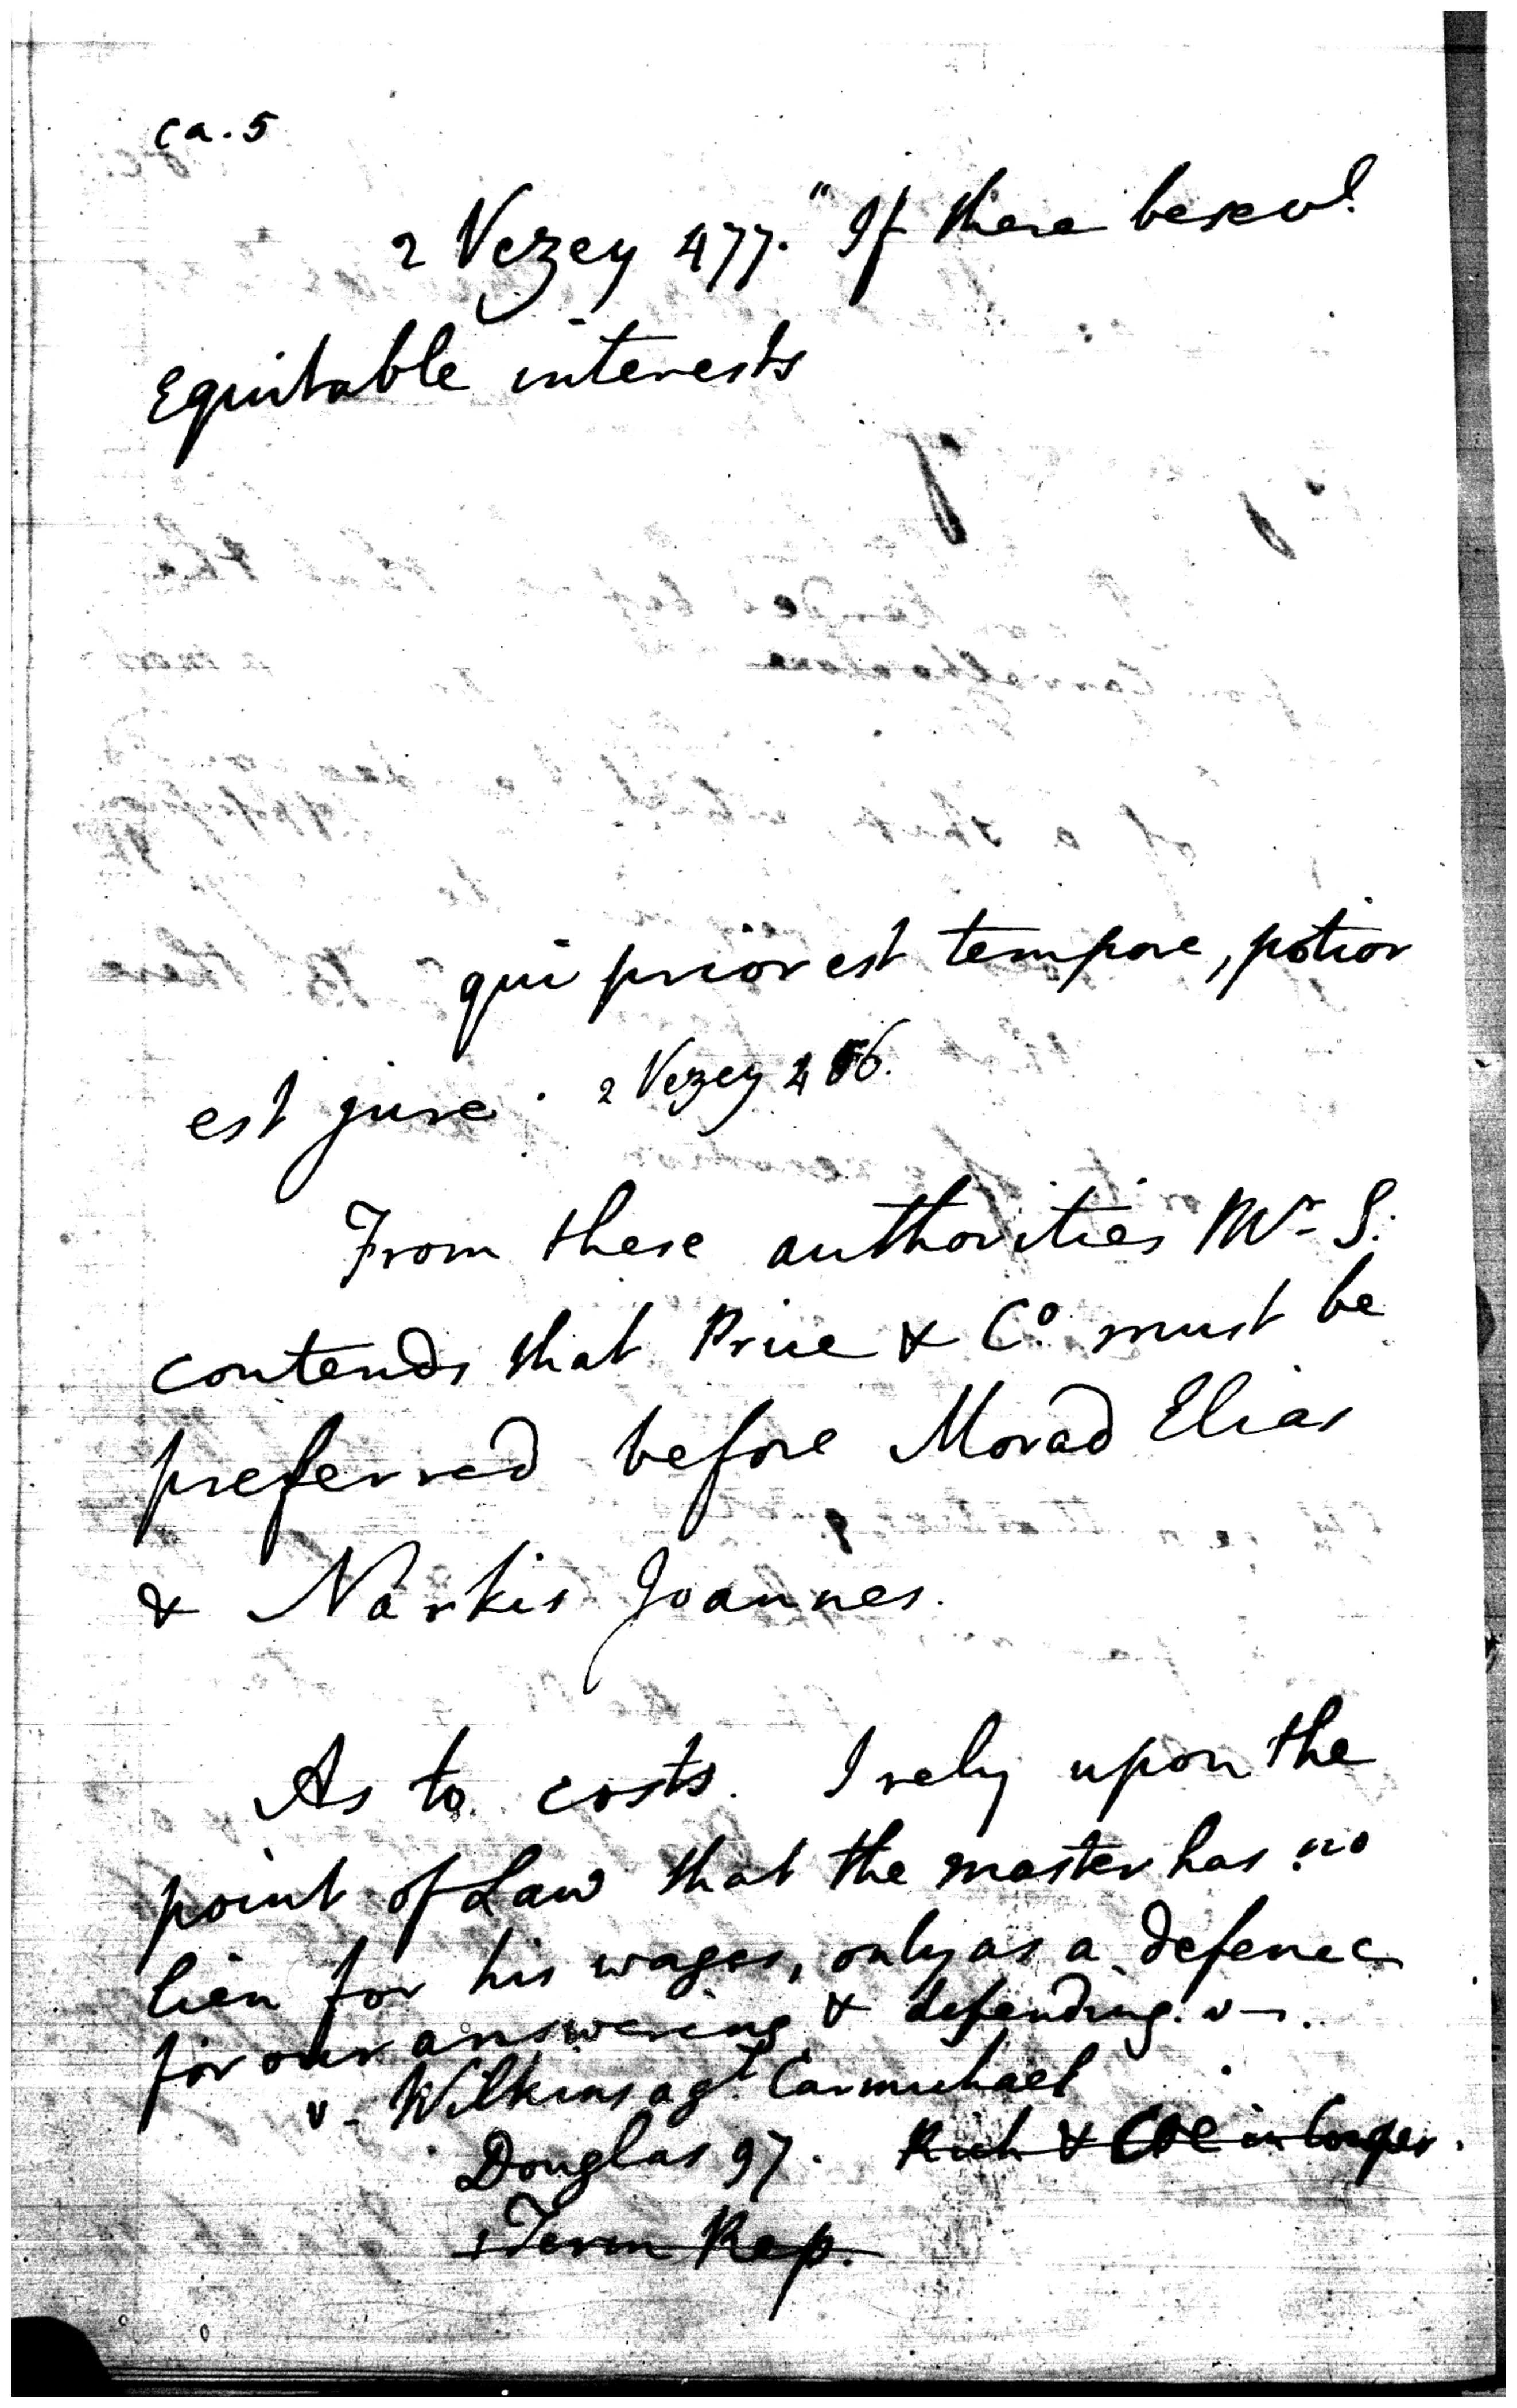 ca. 5
2 Vezey 477. "If there be sev.l
Equitable interests
qui prior est tempore, potior
est jure. 2 Vezey 486.
From these authorities Mr. S.
contends that Price & Co. must be
preferred before Morad Elias
& Narkis Joannes.
As to costs. I rely upon the
point of Law that the master has no
lien for his wages, only as a defence
for our answering & defending. v—.
v. Wilkins ag.t Carmichael
Douglas 97. Rich & Coe in Cowper.
1 Term Rep.